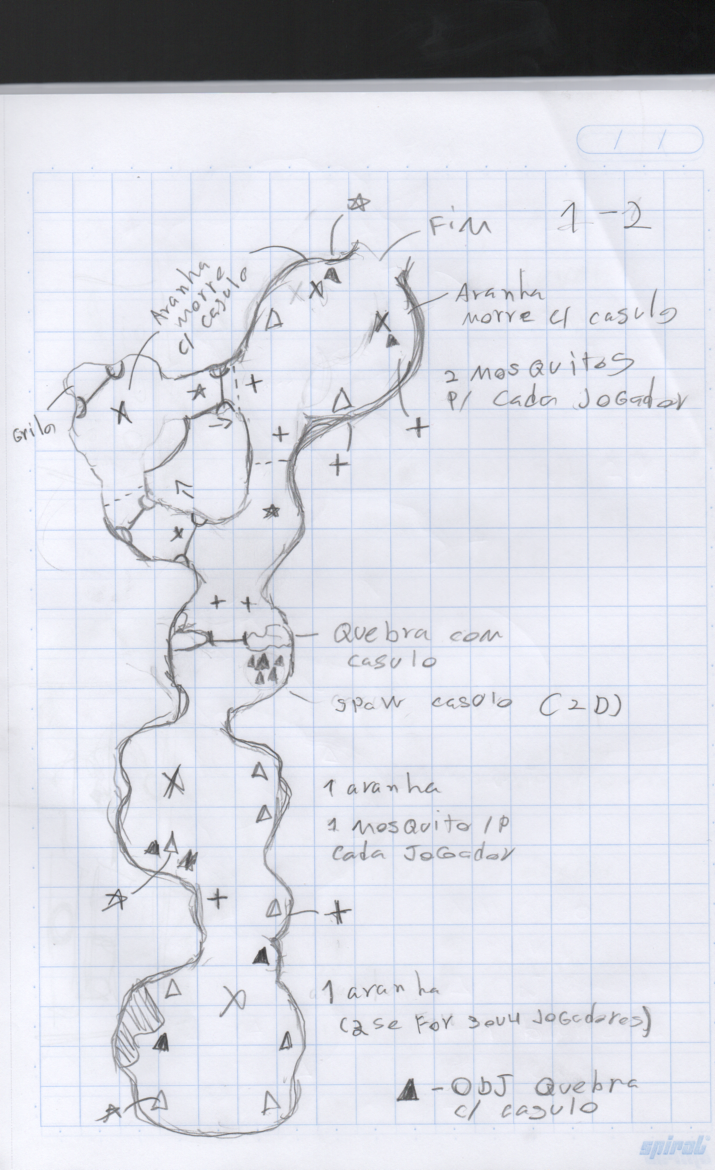 1-2
Fim
Aranha
morre
c/ casulo
Aranha
morre c/ casulo
2 mosquitos
p/ cada jogador
Grilo
Quebra com
casulo
spaw casulo (2D)
1 aranha
1 mosquito /p
cada jogador
1 aranha
(2 se for 3 ou 4 jogadores)
▲ - OBJ Quebra
c/ casulo
spiral